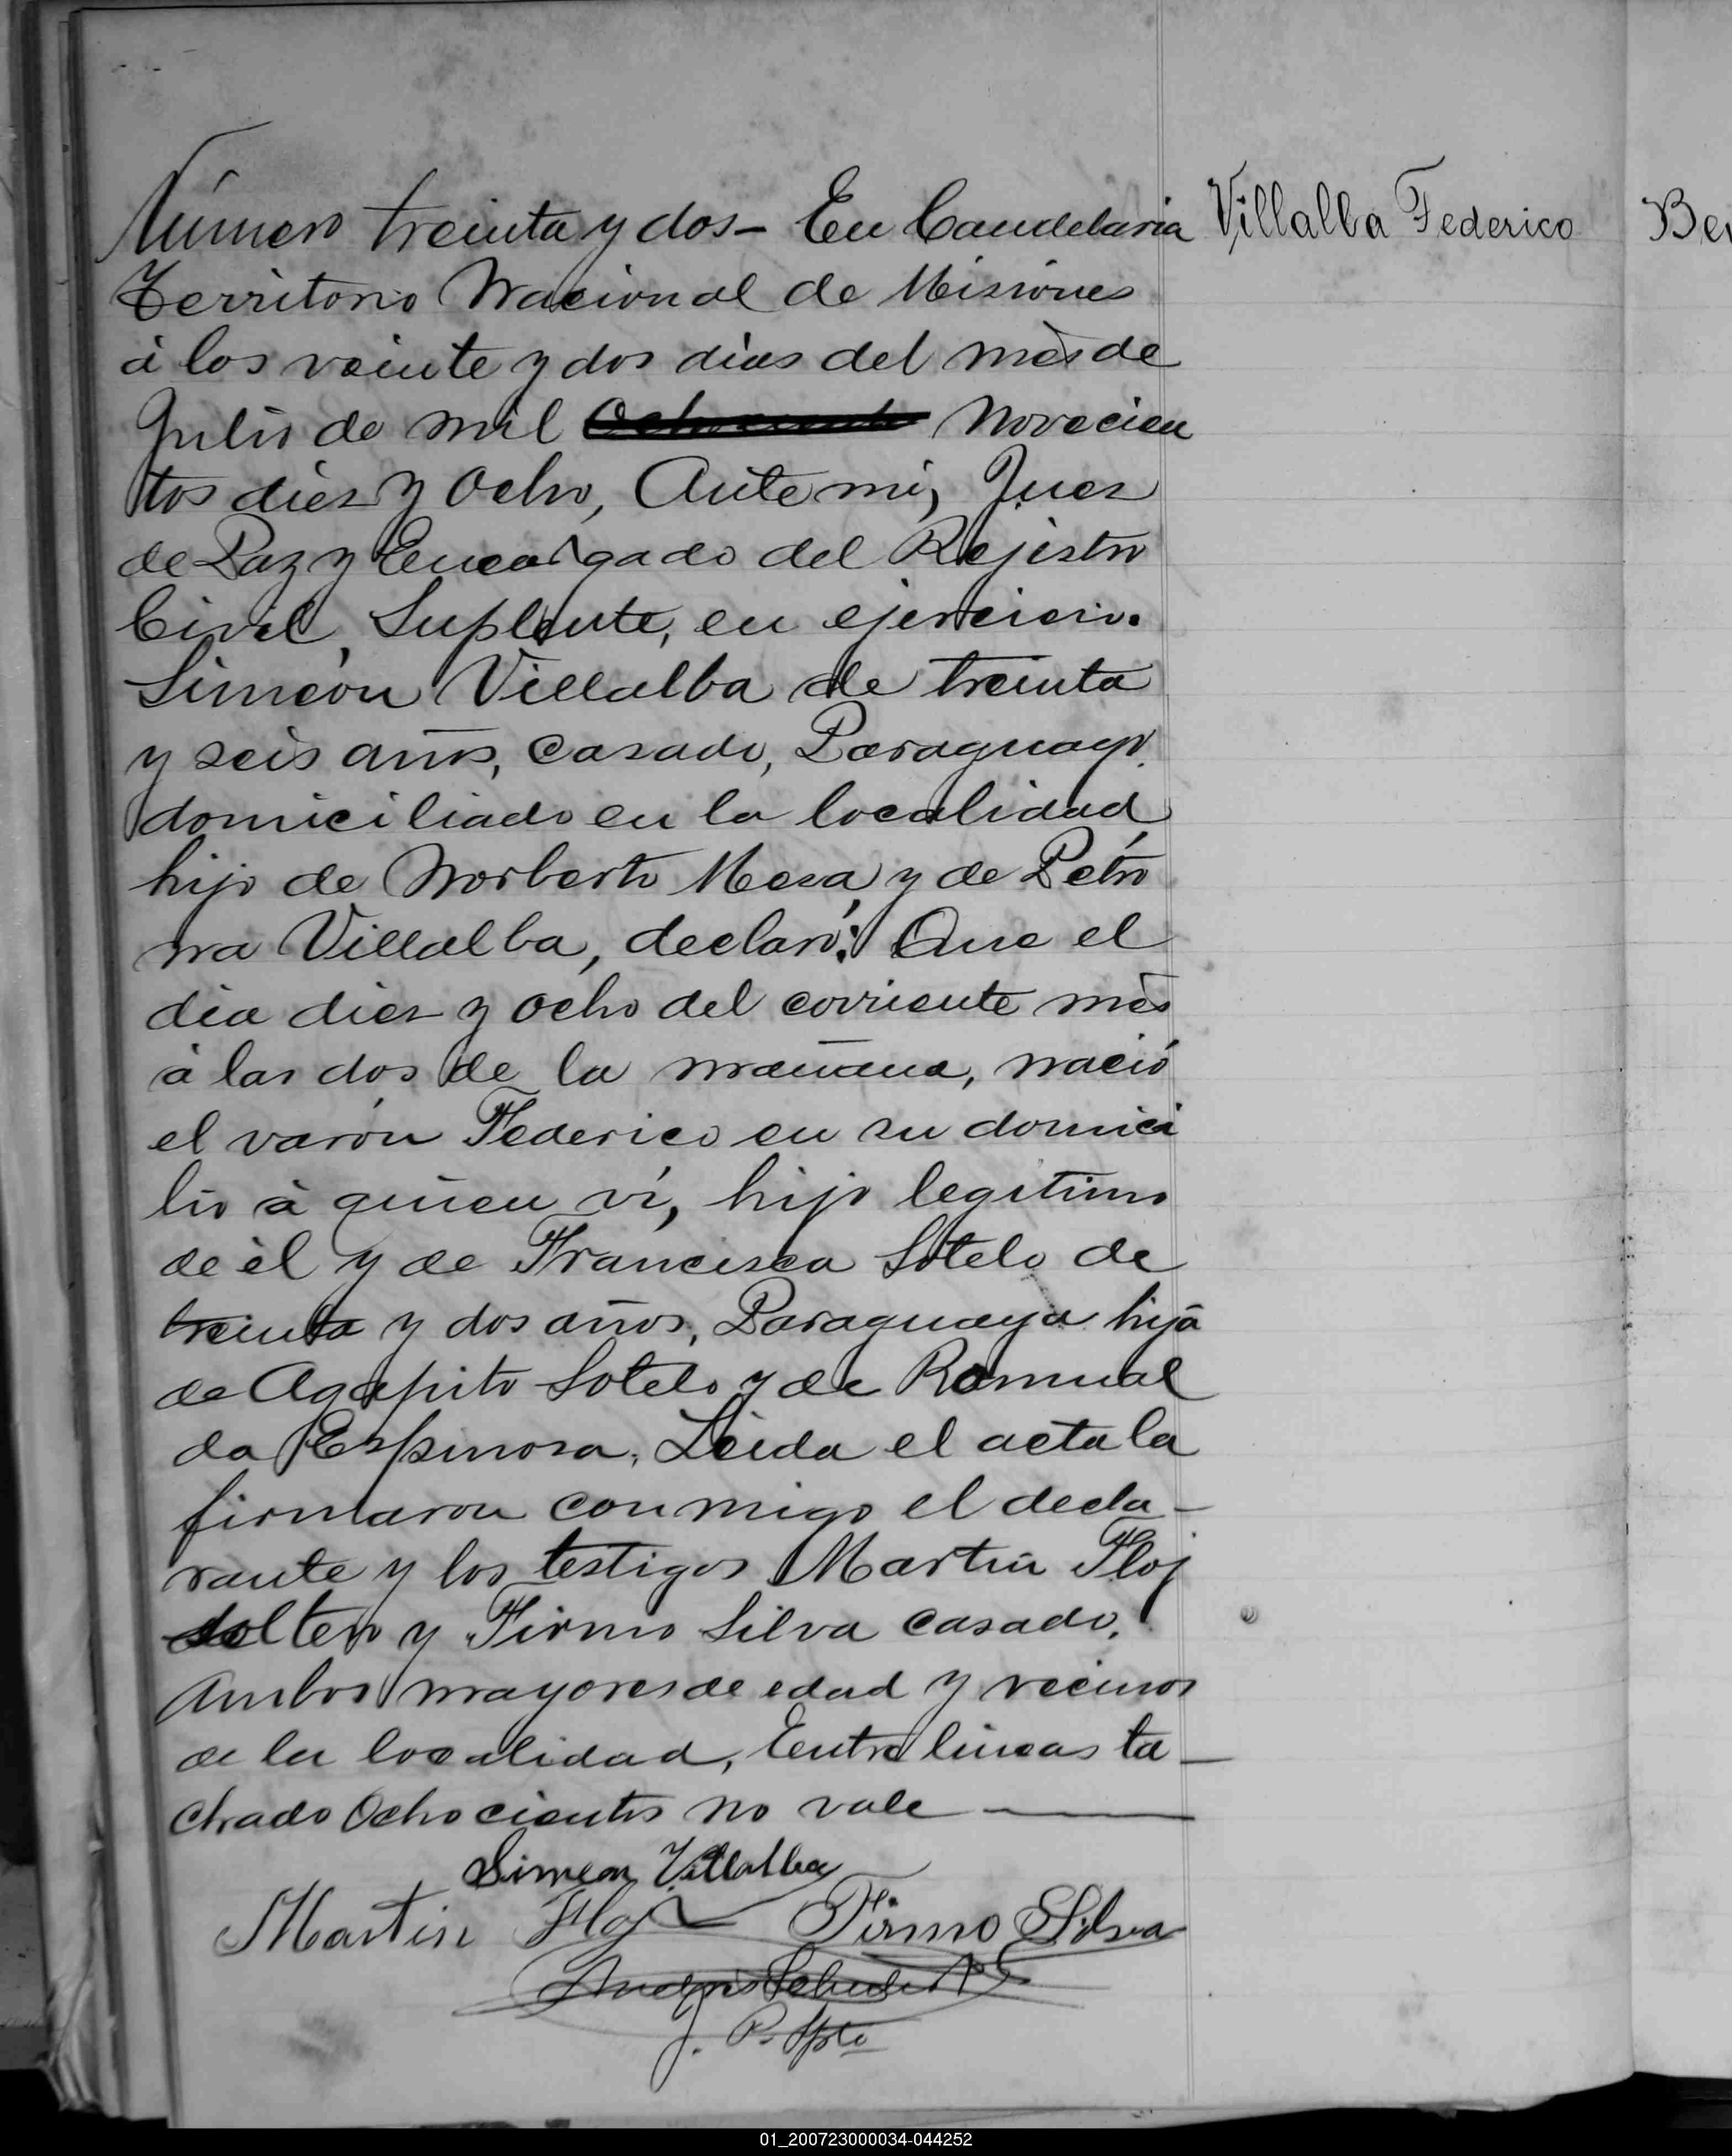 Número treinta y dos - En Candelaria
Villalba Federico
Territorio Nacional de Misiones
á los veinte y dos dias del mès de
Julio de mil Ochociento Novecien
tos diez y Ocho, Ante mi, Juez
de Paz y Encargado del Rejistro
Civil, Suplente, en ejercicio.
Simeón Villalba de treinta
y seis años, casado, Paraguayo.
domiciliado en la localidad
hijo de Norberto Meza, y de Petro
na Villalba, declaró: Que el
dia diez y ocho del corriente mès
à las dos de la mañana, nació
el varón Federico en su domici
lio à quien ví, hijo legitimo
de èl y de Francisca Sotelo de
treinta y dos años, Paraguaya hija
de Agapito Sotelo y de Romual
da Espinosa. Leida el acta la
firmaron conmigo el decla-
rante y los testigos Martin Floj
soltero y Firmo Silva casado.
Ambos mayores de edad y vecinos
de la localidad, Entre lineas ta-
chado Ochocientos no vale
Simeon Villalba
Martin Floj Firmo Silva
J. P. Spte